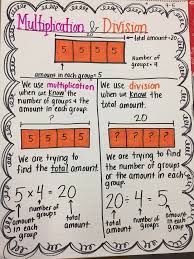 Multiplication & Division
total amount=20
5 5 5 5
Number of groups=4
amount in each group=5
We use multiplication when we know the number of groups & the amount in each group.
20
5 5 5 5
We are trying to find the total amount.
5 x 4 = 20
amount in each group
number of groups
total amount
We use division when we know the total amount.
20
? ? ? ?
We are trying to find the number of groups or the amount in each group.
20÷4=5
total amount
number of groups
amount in each group